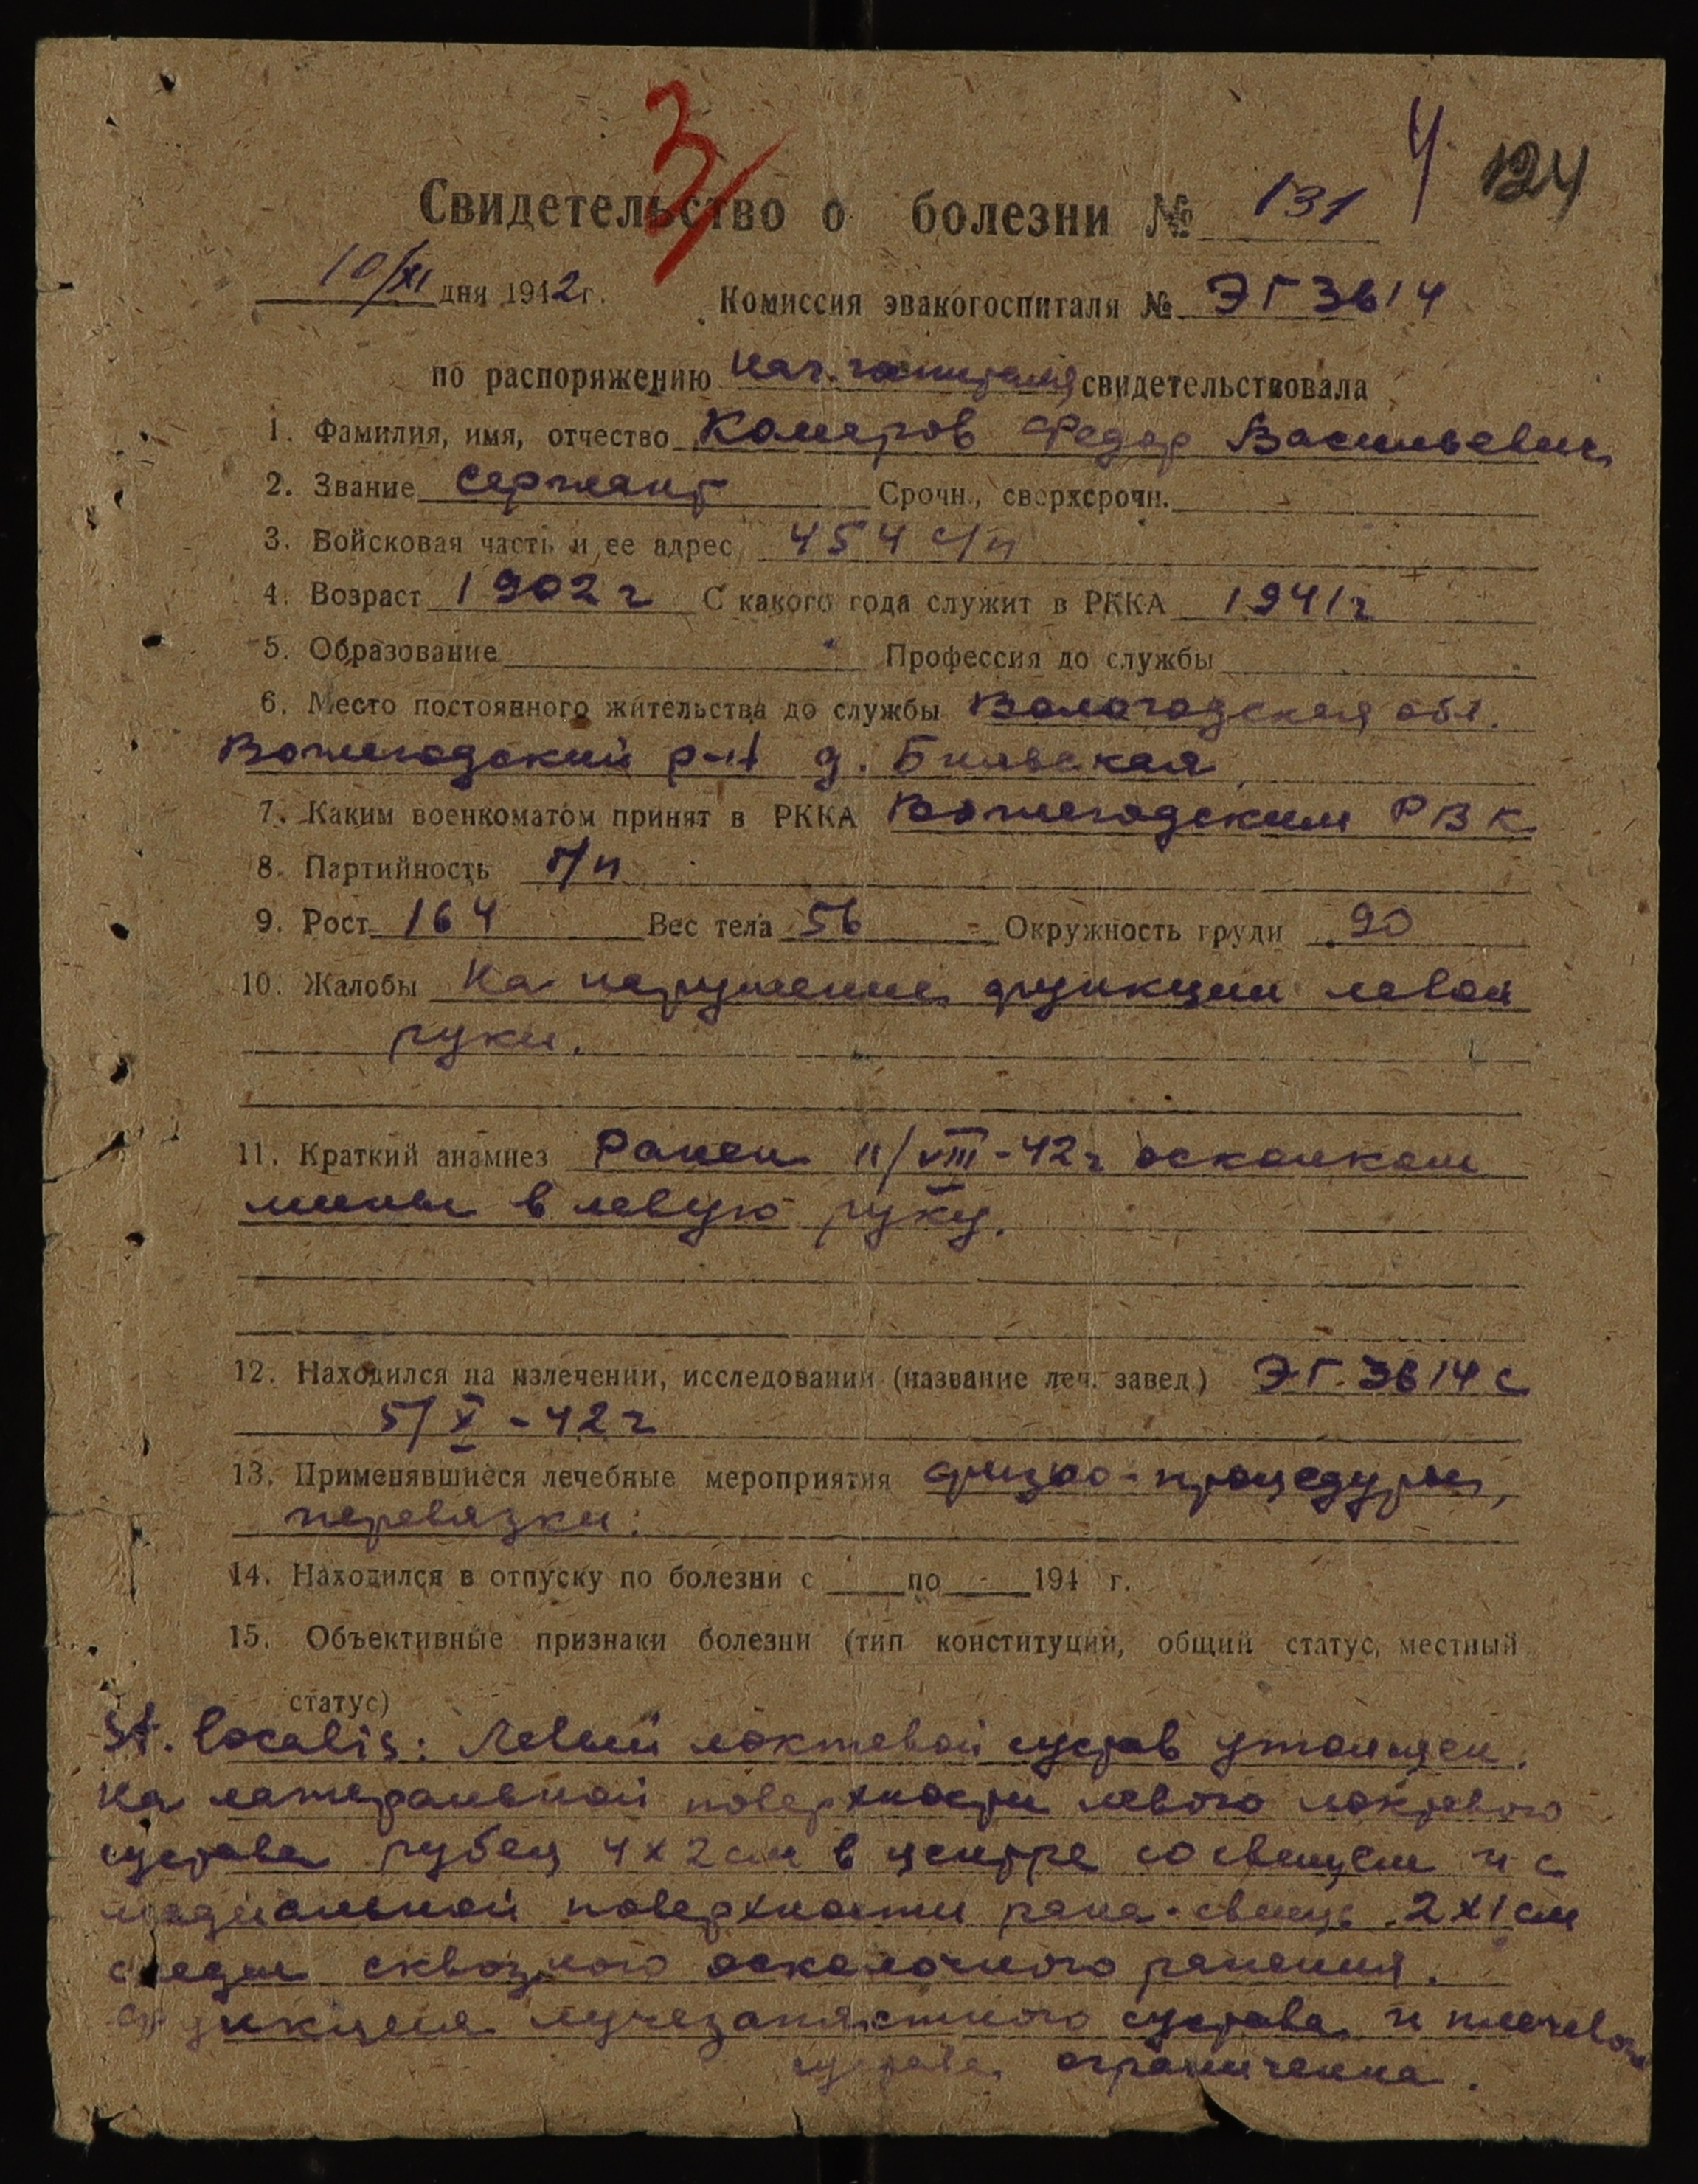 3/
4 124
Свидетельство о болезни № 131
10/XI дня 1942 г. Комиссия эвакогоспиталя № ЭГ 3614
по распоряжению нач. госпиталя свидетельствовала
1. Фамилия, имя, отчество Комаров Федор Васильевич
2. Звание сержант Срочн., сверхсрочн.
3. Войсковая часть и ее адрес 454 с/п
4. Возраст 1902 г С какого года служит в РККА 1941 г
5. Образование Профессия до службы
6. Место постоянного жительства до службы Вологодская обл.
Вожегодский р-н д.
7. Каким военкоматом принят в РККА Вожегодским РВК
8. Партийность б/п
9. Рост 164 Вес тела 56 Окружность груди 90
10. Жалобы На нарушение функции левой
руки.
11. Краткий анамнез Ранен 11/VIII-42 г осколком
мины в левую руку.
12. Находился на излечении, исследовании (название леч. завед.) ЭГ. 3614 с
5/X-42 г
13. Применявшиеся лечебные мероприятия физио-процедуры,
перевязки.
14. Находился в отпуску по болезни с по 194 г.
15. Объективные признаки болезни (тип конституции, общий статус, местный
статус)
St. localis: Левый локтевой сустав утолщен.
На латеральной поверхности левого локтевого
сустава рубец 4х2 см в центре со свищем и с
медиальной поверхности рана-свищ 2х1 см
следы сквозного осколочного ранения.
Функция лучезапястного сустава и плечевого
сустава ограничена.